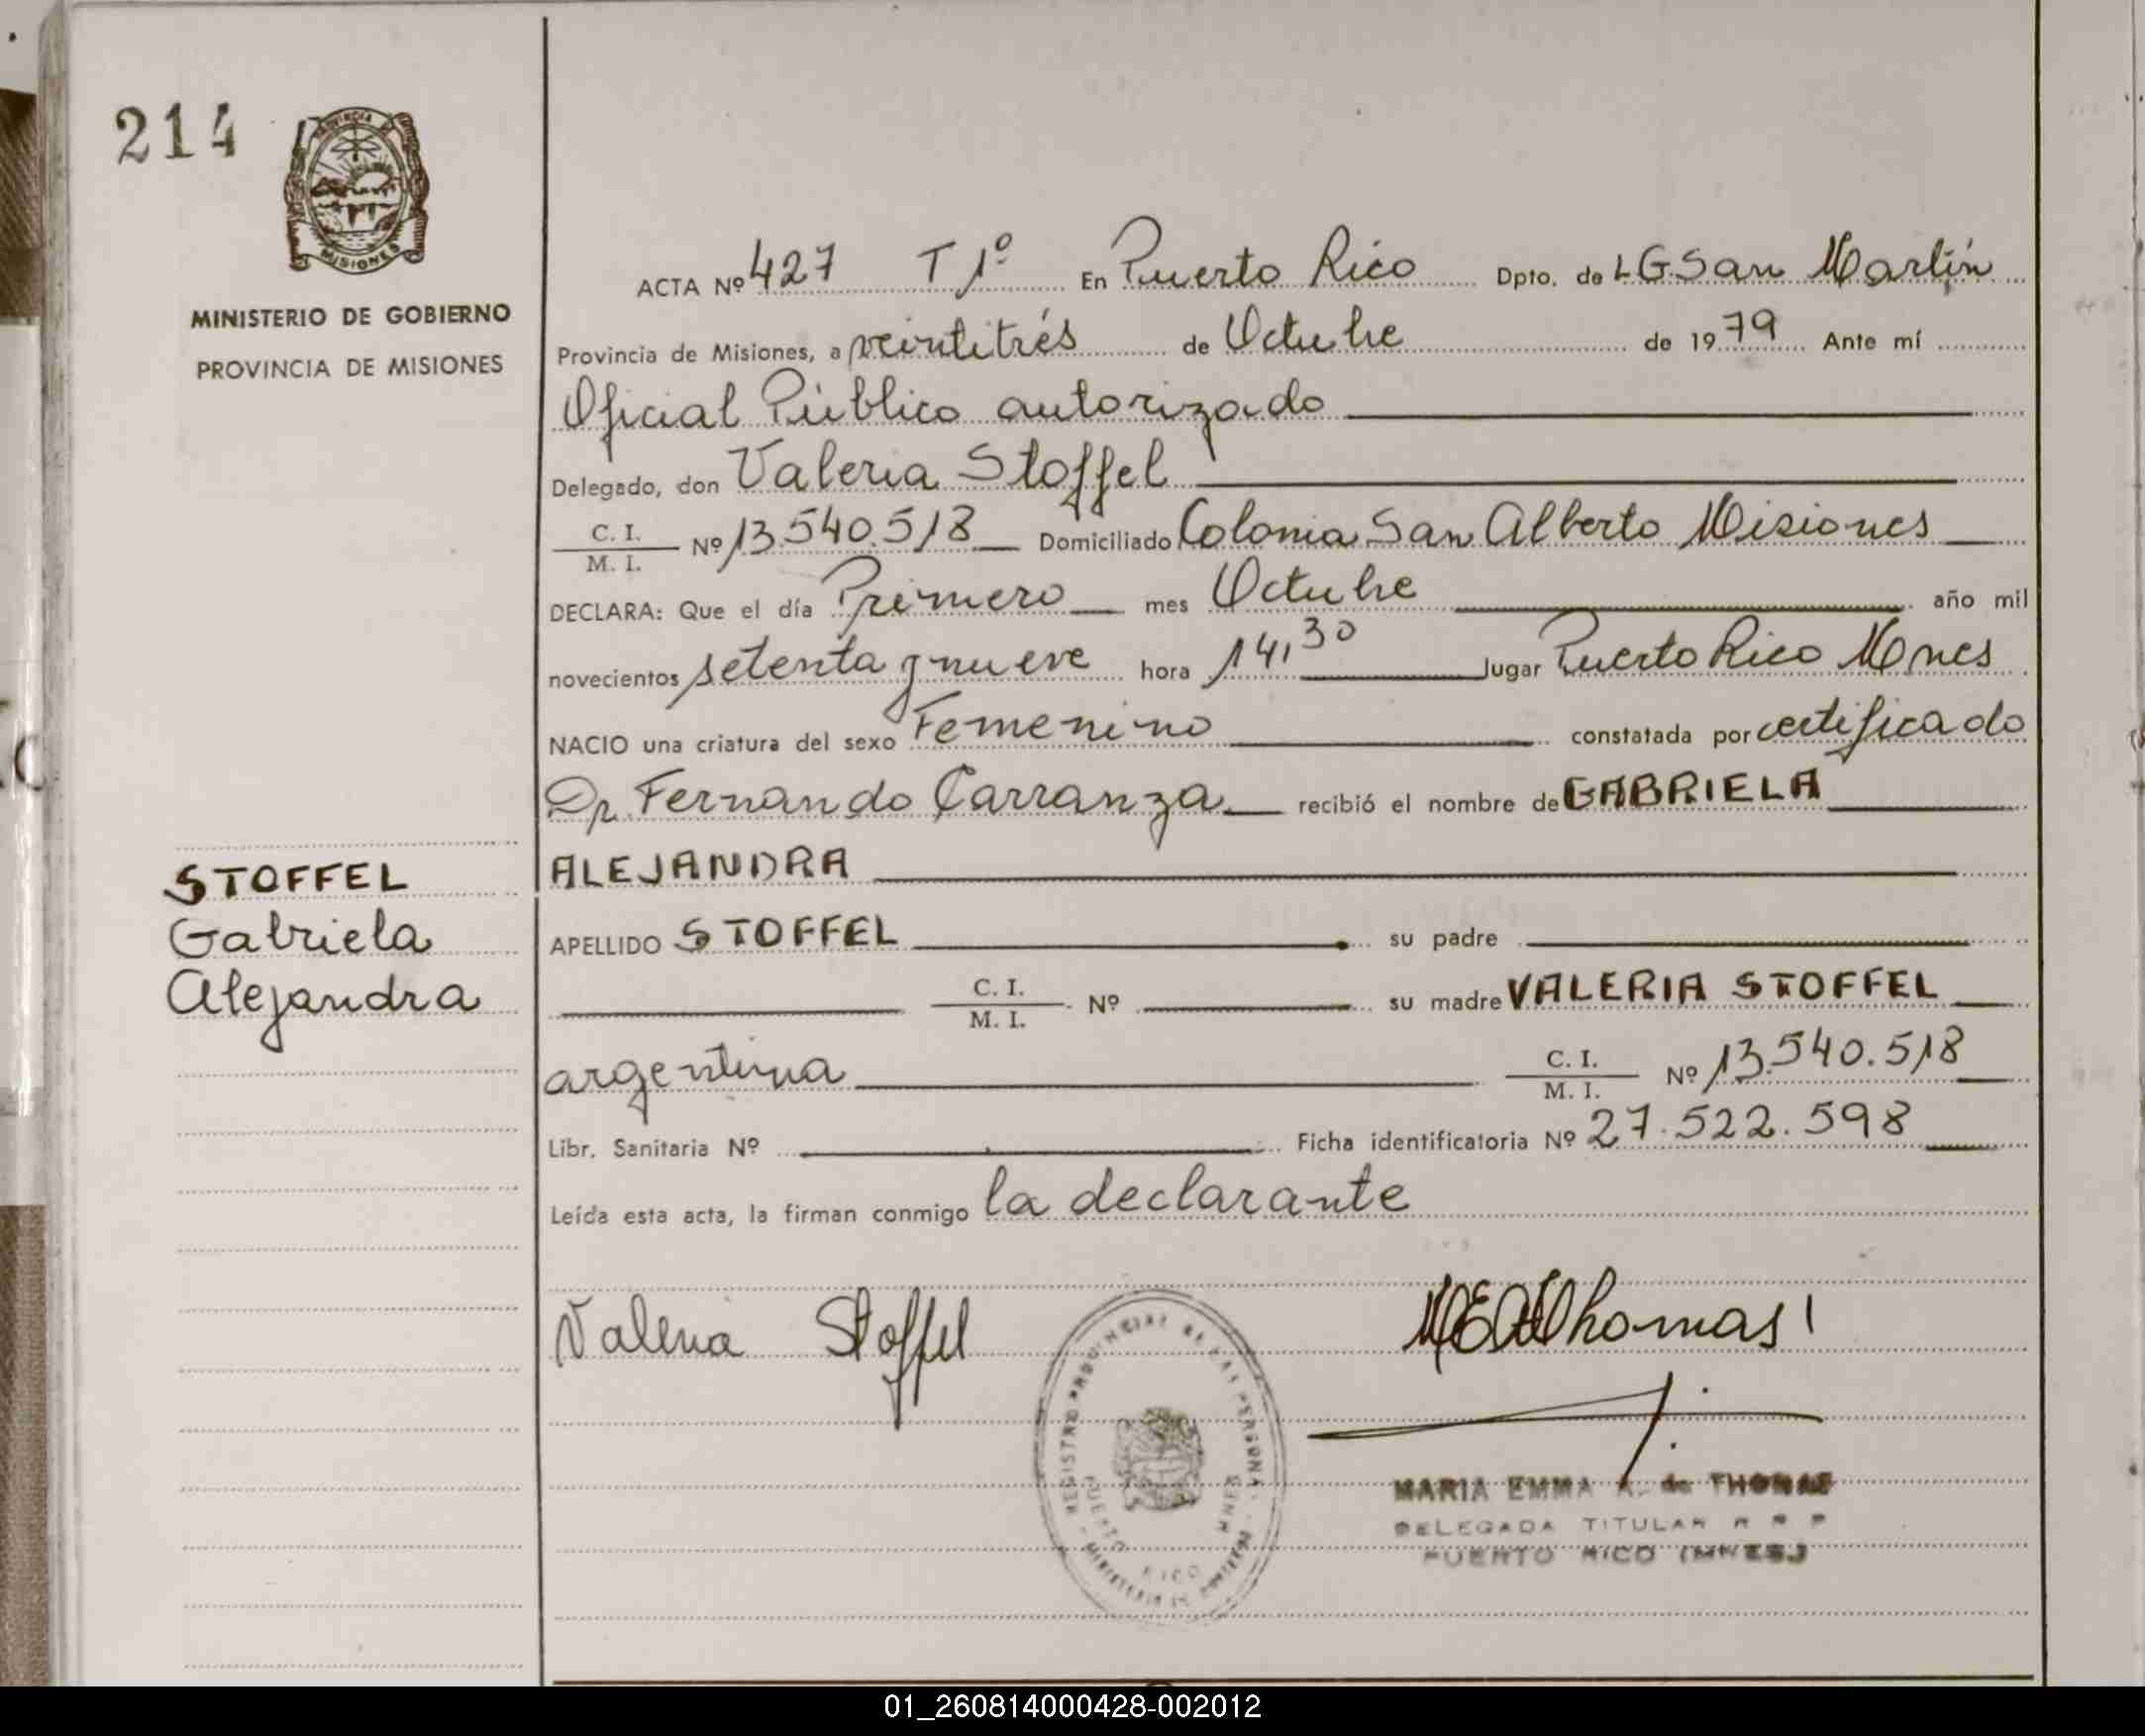 214
PROVINCIA DE
MISIONES
MINISTERIO DE GOBIERNO
PROVINCIA DE MISIONES
STOFFEL
Gabriela
Alejandra
ACTA Nº 427 T 1º En Puerto Rico Dpto. de L G San Martín
Provincia de Misiones, a veintitrés de Octubre de 1979 Ante mí
Oficial Público autorizado
Delegado, don Valeria Stoffel
C. I.
M. I. Nº 13.540.518 Domiciliado Colonia San Alberto Misiones
DECLARA: Que el día Primero mes Octubre año mil
novecientos setenta y nueve hora 14,30 lugar Puerto Rico Mnes
NACIO una criatura del sexo Femenino constatada por certificado
Dr. Fernando Carranza recibió el nombre de GABRIELA
ALEJANDRA
APELLIDO STOFFEL su padre
C. I.
M. I. Nº su madre VALERIA STOFFEL
argentina C. I.
M. I. Nº 13.540.518
Libr. Sanitaria Nº Ficha identificatoria Nº 27.522.598
Leída esta acta, la firman conmigo la declarante
Valeria Stoffel
REGISTRO PROVINCIAL DE LAS PERSONAS
PUERTO RICO MNES
MINISTERIO DE GOBIERNO
MARIA EMMA A. de THOMAS
DELEGADA TITULAR R P P
PUERTO RICO (MNES)
01_260814000428-002012